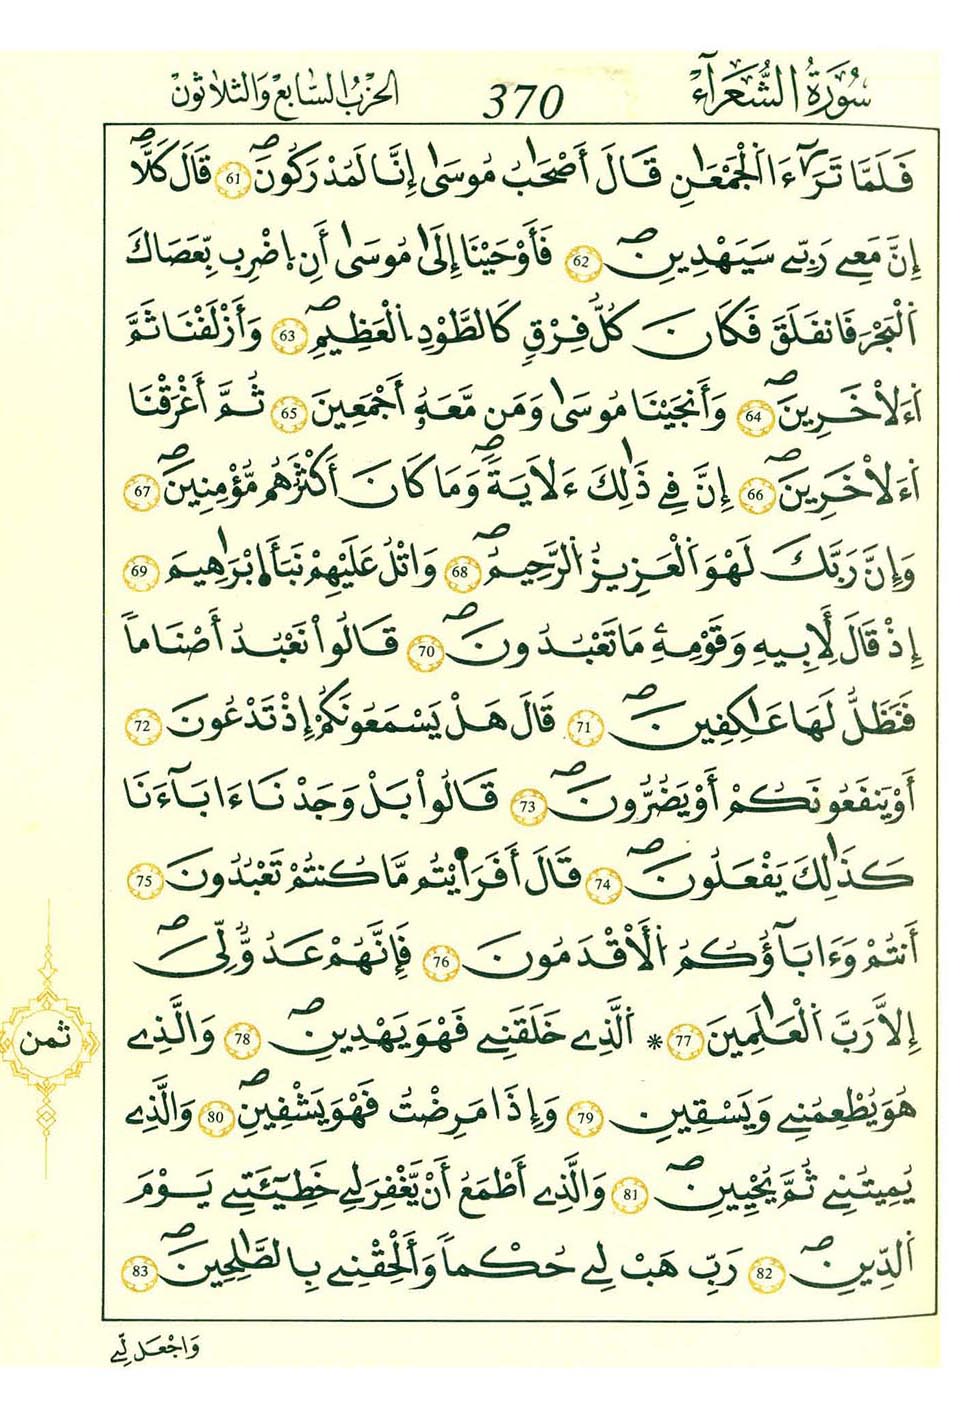 سُورَةُ الشُّعَرَآءِ 370 الحزب السابع والثلاثون
فَلَمَّا تَرَٰٓءَا اَ۬لْجَمْعَٰنِ قَالَ أَصْحَٰبُ مُوسَىٰٓ إِنَّا لَمُدْرَكُونَۖ 61 قَالَ كَلَّآۖ
إِنَّ مَعِے رَبِّے سَيَهْدِينِۖ 62 فَأَوْحَيْنَا إِلَىٰ مُوسَىٰٓ أَنِ اِ۪ضْرِب بِّعَصَاكَ
اَ۬لْبَحْرَ فَانفَلَقَ فَكَانَ كُلُّ فِرْقٍ كَالطَّوْدِ اِ۬لْعَظِيمِۖ 63 وَأَزْلَفْنَا ثَمَّ
اَ۬ءَلَاْخَرِينَۖ 64 وَأَنجَيْنَا مُوسَىٰ وَمَن مَّعَهُۥٓ أَجْمَعِينَ 65 ثُمَّ أَغْرَقْنَا
اَ۬ءَلَاْخَرِينَۖ 66 إِنَّ فِے ذَٰلِكَ ءَلَايَةٗۖ وَمَا كَانَ أَكْثَرُهُم مُّؤْمِنِينَۖ 67
وَإِنَّ رَبَّكَ لَهْوَ اَ۬لْعَزِيزُ اُ۬لرَّحِيمُۖ 68 وَاتْلُ عَلَيْهِمْ نَبَأَ اِبْرَٰهِيمَ 69
إِذْ قَالَ لِأَبِيهِ وَقَوْمِهِۦ مَا تَعْبُدُونَۖ 70 قَالُواْ نَعْبُدُ أَصْنَاماٗ
فَنَظَلُّ لَهَا عَٰكِفِينَۖ 71 قَالَ هَلْ يَسْمَعُونَكُمُۥٓ إِذْ تَدْعُونَ 72
أَوْ يَنفَعُونَكُمُۥٓ أَوْ يَضُرُّونَۖ 73 قَالُواْ بَلْ وَجَدْنَا ءَابَآءَنَا
كَذَٰلِكَ يَفْعَلُونَۖ 74 قَالَ أَفَرَٰٓيْتُم مَّا كُنتُمْ تَعْبُدُونَ 75
أَنتُمْ وَءَابَآؤُكُمُ اُ۬لْأَقْدَمُونَ 76 فَإِنَّهُمْ عَدُوّٞ لِّيَۖ
إِلَّا رَبَّ اَ۬لْعَٰلَمِينَ 77 * اَ۬لَّذِے خَلَقَنِے فَهْوَ يَهْدِينِۖ 78 وَالَّذِے
هُوَ يُطْعِمُنِے وَيَسْقِينِ 79 وَإِذَا مَرِضْتُ فَهْوَ يَشْفِينِۖ 80 وَالَّذِے
يُمِيتُنِے ثُمَّ يُحْيِينِۖ 81 وَالَّذِےٓ أَطْمَعُ أَنْ يَّغْفِرَ لِے خَطِيٓـَٔتِے يَوْمَ
اَ۬لدِّينِۖ 82 رَبِّ هَبْ لِے حُكْماٗ وَأَلْحِقْنِے بِالصَّٰلِحِينَۖ 83
ثمن
وَاجْعَل لِّے